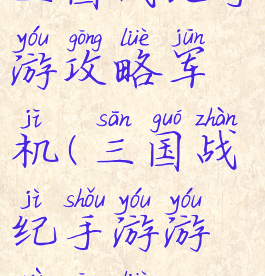 yóu gōng lüè jūn
游攻略军
jī sān guó zhàn
机(三国战
jì shǒu yóu yóu
纪手游游